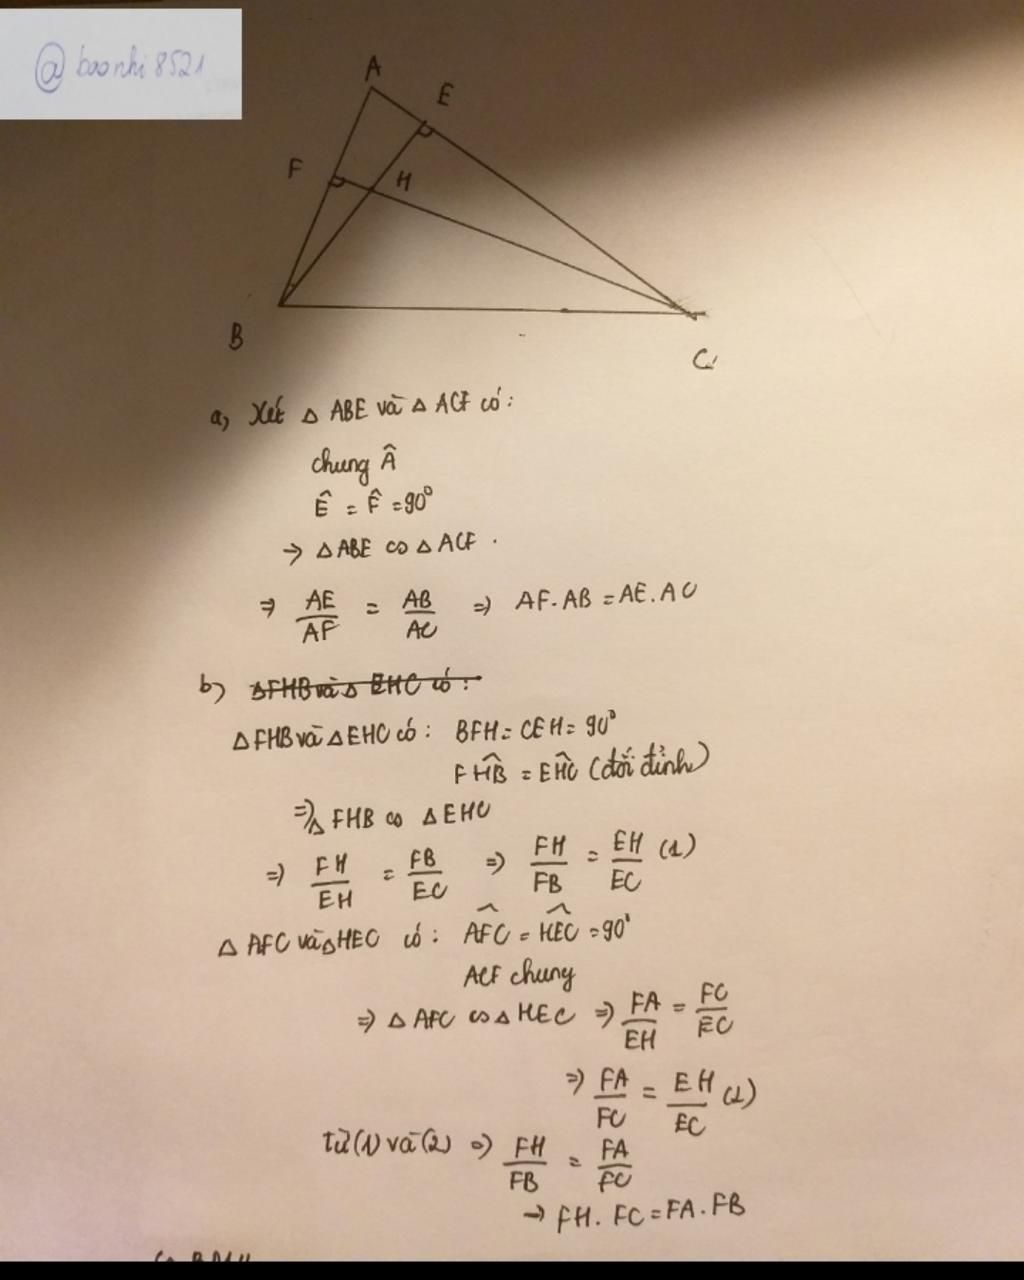 @baonhi8521
A
E
F
H
B
C
a, Xét Δ ABE và Δ ACF có:
chung Â
Ê = F̂ = 90°
→ Δ ABE ∽ Δ ACF.
⇒ AE/AF = AB/AC ⇒ AF.AB = AE.AC
b, ΔFHB và Δ EHC có:
ΔFHB và ΔEHC có: BFH = CEH = 90°
FĤB = EĤC (đối đỉnh)
⇒ Δ FHB ∽ Δ EHC
⇒ FH/EH = FB/EC ⇒ FH/FB = EH/EC (1)
Δ AFC và ΔHEC có: AFC = HEC = 90°
ACF chung
⇒ Δ AFC ∽ Δ HEC ⇒ FA/EH = FC/EC
⇒ FA/FC = EH/EC (2)
từ (1) và (2) ⇒ FH/FB = FA/FC
→ FH.FC = FA.FB